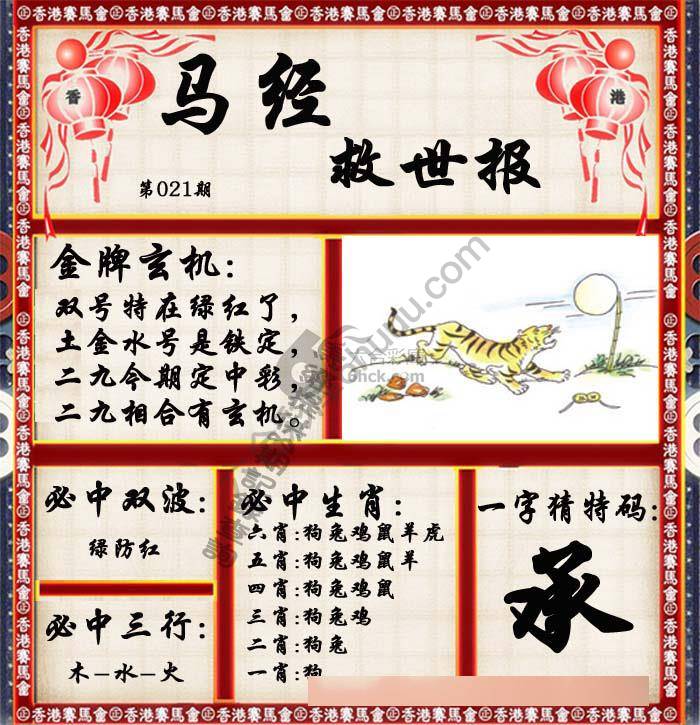 香港賽馬會㊣香港賽馬會㊣香港賽馬會㊣香港賽馬會㊣香港賽馬會
香
港
马经
救世报
第021期
金牌玄机:
双号特在绿红了,
土金水号是铁定,
二九今期定中彩,
二九相合有玄机。
必中双波:
绿防红
必中三行:
木-水-火
必中生肖:
六肖:狗兔鸡鼠羊虎
五肖:狗兔鸡鼠羊
四肖:狗兔鸡鼠
三肖:狗兔鸡
二肖:狗兔
一肖:狗
一字猜特码:
承